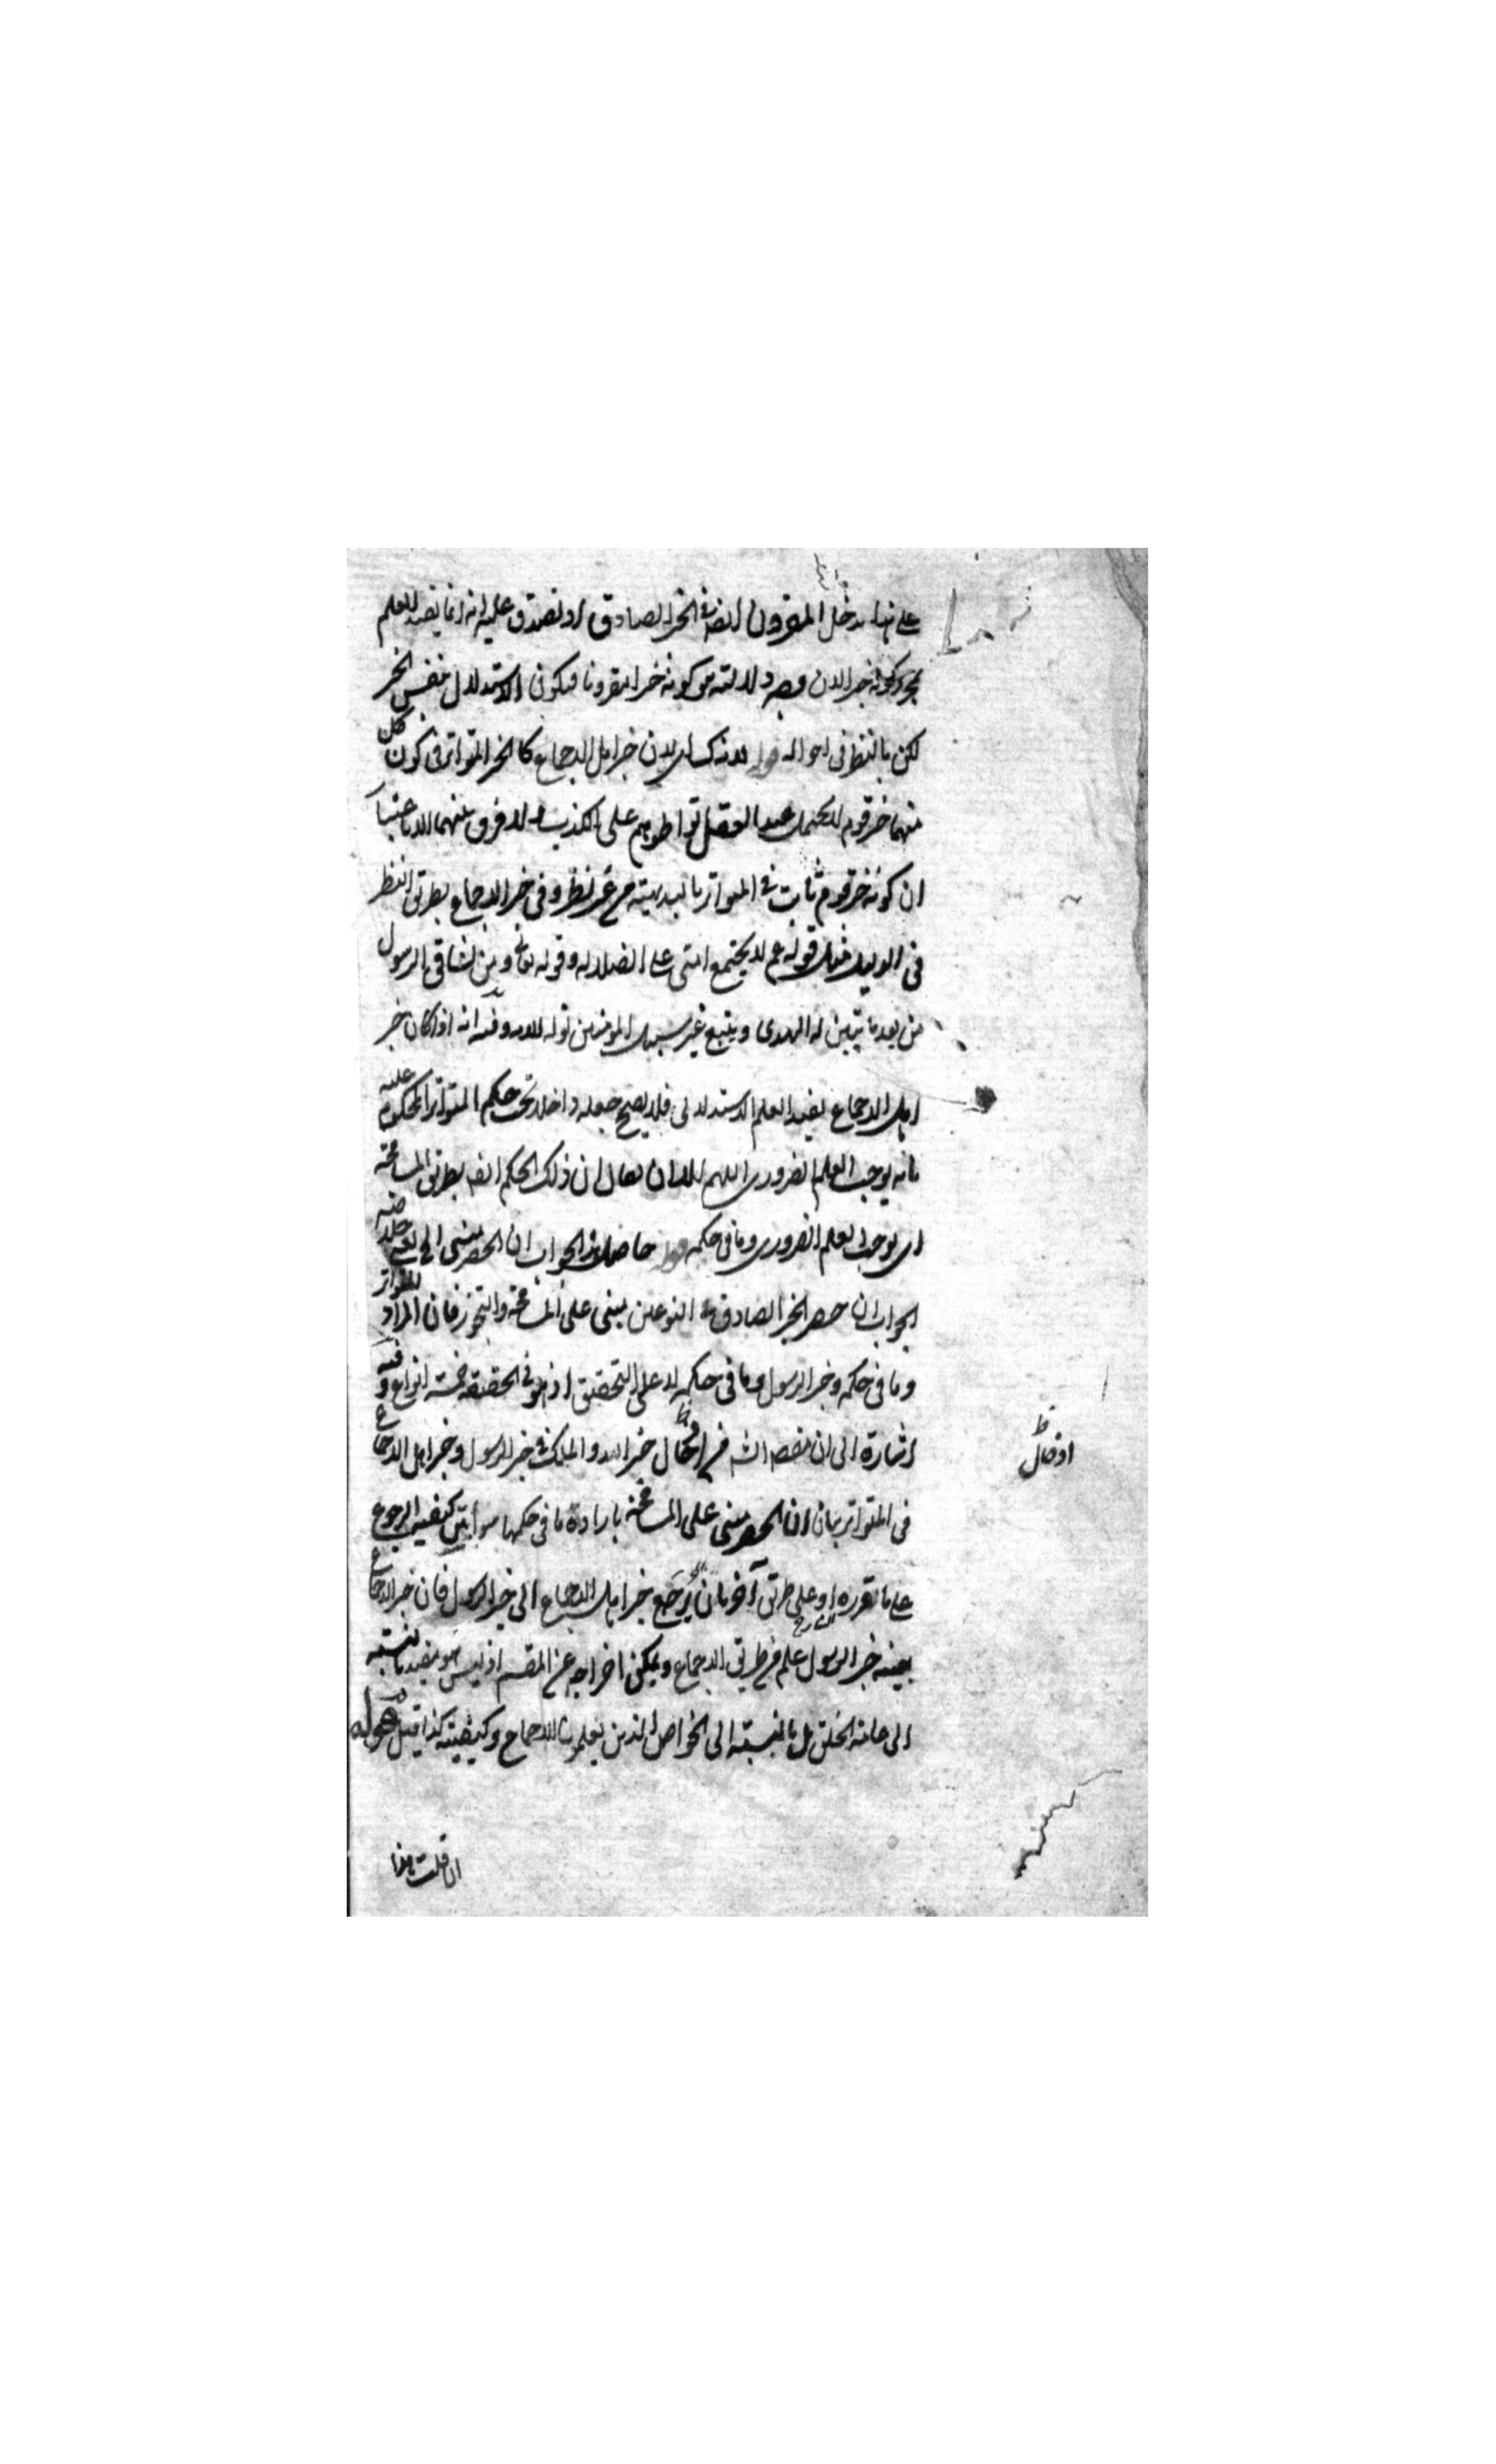 على هذا يدخل المقرون ايضا في الخبر الصادق اذ يصدق عليه انه انما يفيد العلم
بمجرد كونه خبرا لان وجه دلالته هو كونه خبرا مقرونا فيكون الاستدلال بنفس الخبر
لكن بالنظر في احواله قوله لانه كسا اى لان خبر اهل الاجماع كالخبر المتواتر في كون كل
منهما خبر قوم لا يحتمل عند العقل تواطؤهم على الكذب ولا فرق بينهما الا باعتبار
ان كونه خبر قوم ثابت في المتواتر بالبديهية من غير نظر وفي خبر الاجماع بطريق النظر
في الدليل مثل قوله عم لا يجتمع امتى على الضلالة وقوله تعالى ومن يشاقق الرسول
من بعد ما تبين له الهدى ويتبع غير سبيل المؤمنين نوله وفيه انه اذا كان خبر
اهل الاجماع يفيد العلم الاستدلالى فلا يصح جعله داخلا تحت حكم المتواتر المحكوم عليه
بانه يوجب العلم الضرورى اللهم الا ان يقال ان ذلك الحكم ايضا بطريق المسامحة
اى يوجب العلم الضرورى وما في حكمه قوله حاصل هذا الجواب ان الحصر مبنى الخ خلاصة
الجواب ان حصر الخبر الصادق في النوعين مبنى على المسامحة والتجوز فان المراد المتواتر
وما في حكمه وخبر الرسول وما في حكمه لا على التحقيق اذ هو في الحقيقة خمسة انواع وفيه
اشارة الى ان مقصد الشه من ادخال خبر الله والملك في خبر الرسول وخبر اهل الاجماع
في المتواتر بيان ان الحصر مبنى على المسامحة بارادة ما في حكمها سواء بين كيفية الرجوع
على ما قرره الشارح او على طريق آخر بان يرجع خبر اهل الاجماع الى خبر الرسول فان خبر الاجماع
بعينه خبر الرسول علم من طريق الاجماع ويمكن اخراجه عن المقسم اذ ليس هو مفيدا بالنسبة
الى عامة الخلق بل بالنسبة الى الخواص الذين يعلمون الاجماع وكيفيته كذا قيل قوله
ادخال
ان قلت هذا